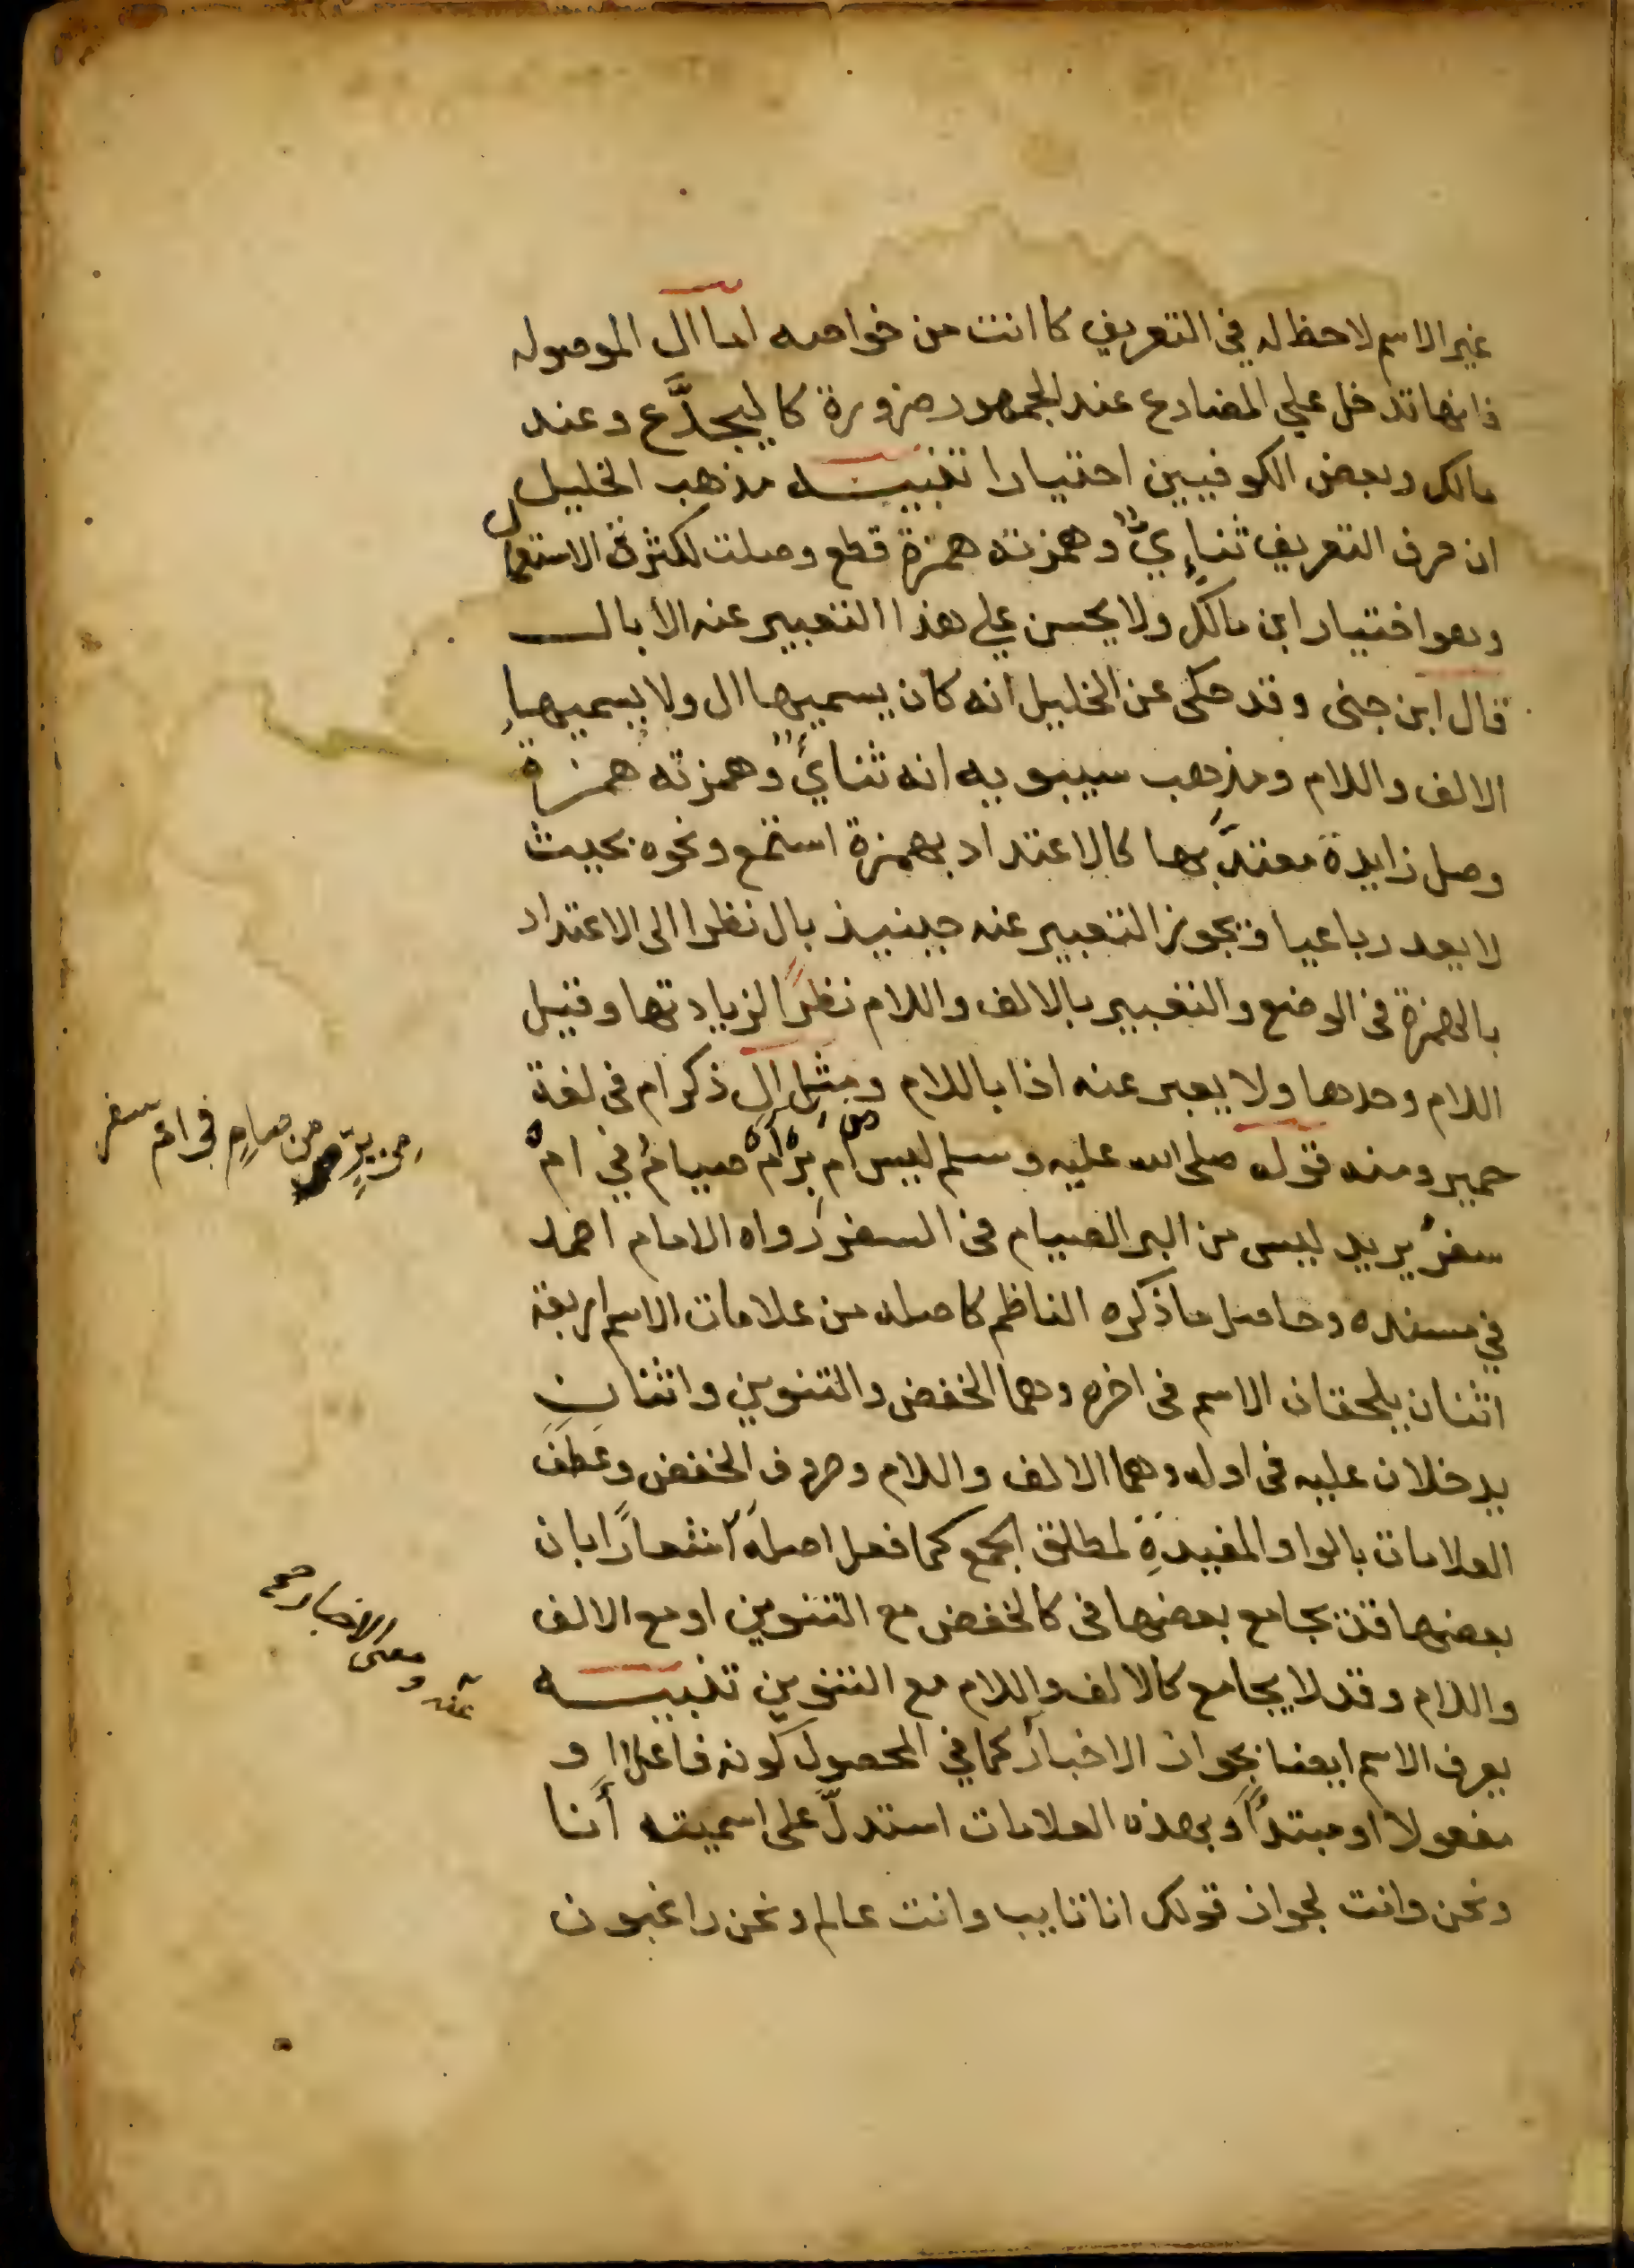 غير الاسم لاحظ له في التعريف كاانت من خواصه اما ال الموصوله
فانها تدخل علي المضارع عند الجمهور ضرورة كاليجدَّع وعند
مالك وبعض الكوفيين اختيارا تنبيه مذهب الخليل
ان حرف التعريف ثنائيٌّ وهمزته همزة قطع وصلت لكثرة الاستعمال
وهو اختيار ابن مالك ولا يحسن علي هذا التعبير عنه الا بال
قال ابن جنى وقد حكى عن الخليل انه كان يسميها ال ولا يسميها
الالف واللام ومذهب سيبويه انه ثنائيٌّ وهمزته همزة
وصل زايدة معتدٌّ بها كالاعتداد بهمزة استمع ونحوه بحيث
لا يعد رباعيا فيجوز التعبير عنه حينيذ بال نظرا الى الاعتداد
بالهمزة فى الوضع والتعبير بالالف واللام نظرًا لزيادتها وقيل
اللام وحدها ولا يعبر عنه اذا باللام ومثل ال ذكر ام فى لغة
حمير ومنه قوله صلى الله عليه وسلم ليس من امْ بِرّ امْ صيام في امْ
سفر يريد ليس من البر الصيام فى السفر رواه الامام احمد
في مسنده وحاصل ما ذكره الناظم كاصله من علامات الاسم اربعة
اثنان يلحقان الاسم فى اخره وهما الخفض والتنوين واثنان
يدخلان عليه فى اوله وهما الالف واللام وحروف الخفض وعَطَفَ
العلامات بالواو المفيدةِ لمطلق الجمع كما فعل اصله اشعارًا بان
بعضها قد يجامع بعضها فى كالخفض مع التنوين او مع الالف
واللام وقد لا يجامع كالالف واللام مع التنوين تنبيه
يعرف الاسم ايضا بجواز الاخبار كما في المحصول كونه فاعلا او
مفعولا او مبتدأً وبهذه العلامات استدلَّ على اسمية أنا
ونحن وانت لجواز قولك انا تايب وانت عالم ونحن راغبون
من صيام فى ام سفر
عنه ومعنى الاخبار